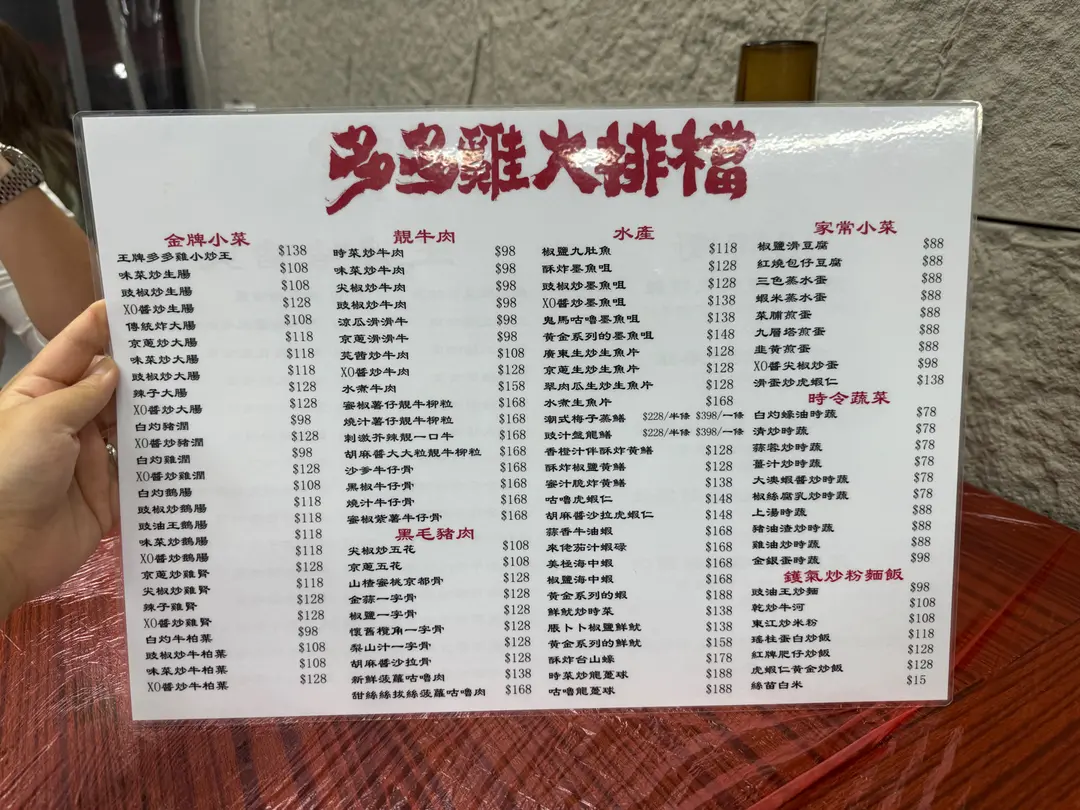 多多雞大排檔
金牌小菜
王牌多多雞小炒王 $138
味菜炒生腸 $108
豉椒炒生腸 $108
XO醬炒生腸 $128
傳統炸大腸 $108
京蔥炒大腸 $118
味菜炒大腸 $118
豉椒炒大腸 $118
辣子大腸 $128
XO醬炒大腸 $128
白灼豬潤 $98
XO醬炒豬潤 $128
白灼雞潤 $98
XO醬炒雞潤 $128
白灼鵝腸 $108
豉椒炒鵝腸 $118
豉油王鵝腸 $118
味菜炒鵝腸 $118
XO醬炒鵝腸 $118
京蔥炒雞腎 $128
尖椒炒雞腎 $118
辣子雞腎 $128
XO醬炒雞腎 $128
白灼牛柏葉 $98
豉椒炒牛柏葉 $108
味菜炒牛柏葉 $108
XO醬炒牛柏葉 $128
靚牛肉
時菜炒牛肉 $98
味菜炒牛肉 $98
尖椒炒牛肉 $98
豉椒炒牛肉 $98
涼瓜滑滑牛 $98
京蔥滑滑牛 $98
芫茜炒牛肉 $108
XO醬炒牛肉 $128
水煮牛肉 $158
蜜椒薯仔靚牛柳粒 $168
燒汁蒜片靚牛柳粒 $168
刺激芥辣靚一口牛 $168
胡麻醬大大粒靚牛柳粒 $168
沙爹牛仔骨 $168
黑椒牛仔骨 $168
燒汁牛仔骨 $168
蜜椒紫薯牛仔骨 $168
黑毛豬肉
尖椒炒五花 $108
京蔥五花 $108
山楂蜜桃京都骨 $128
金蒜一字骨 $128
椒鹽一字骨 $128
懷舊欖角一字骨 $128
梨山汁一字骨 $128
胡麻醬沙拉骨 $128
新鮮菠蘿咕嚕肉 $138
甜絲絲拔絲菠蘿咕嚕肉 $168
水產
椒鹽九肚魚 $118
酥炸墨魚咀 $128
豉椒炒墨魚咀 $128
XO醬炒墨魚咀 $138
鬼馬咕嚕墨魚咀 $138
黃金系列的墨魚咀 $148
廣東生炒生魚片 $128
京蔥生炒生魚片 $128
翠肉瓜生炒生魚片 $128
水煮生魚片 $168
潮式梅子蒸鱔 $228/半條 $398/一條
豉汁盤龍鱔 $228/半條 $398/一條
香橙汁伴酥炸黃鱔 $128
酥炸椒鹽黃鱔 $128
蜜汁脆炸黃鱔 $138
咕嚕虎蝦仁 $148
胡麻醬沙拉虎蝦仁 $148
蒜香牛油蝦 $168
來佬茄汁蝦碌 $168
美極海中蝦 $168
椒鹽海中蝦 $168
黃金系列的蝦 $188
鮮魷炒時菜 $138
脹卜卜椒鹽鮮魷 $138
黃金系列的鮮魷 $158
酥炸台山蠔 $178
時菜炒龍躉球 $188
咕嚕龍躉球 $188
家常小菜
椒鹽滑豆腐 $88
紅燒包仔豆腐 $88
三色蒸水蛋 $88
蝦米蒸水蛋 $88
菜脯煎蛋 $88
九層塔煎蛋 $88
韭黃煎蛋 $88
XO醬尖椒炒蛋 $98
滑蛋炒虎蝦仁 $138
時令蔬菜
白灼蠔油時蔬 $78
清炒時蔬 $78
蒜蓉炒時蔬 $78
薑汁炒時蔬 $78
大澳蝦醬炒時蔬 $78
椒絲腐乳炒時蔬 $78
上湯時蔬 $88
豬油渣炒時蔬 $88
雞油炒時蔬 $88
金銀蛋時蔬 $98
鑊氣炒粉麵飯
豉油王炒麵 $98
乾炒牛河 $108
東江炒米粉 $108
瑤柱蛋白炒飯 $118
紅牌肥仔炒飯 $128
虎蝦仁黃金炒飯 $128
絲苗白米 $15